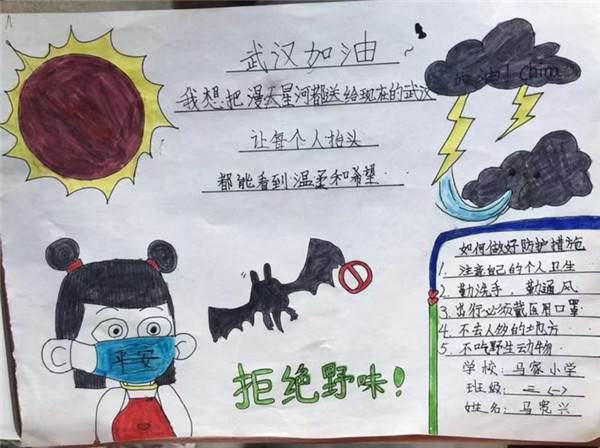 武汉加油~
我想把漫天星河都送给现在的武汉
让每个人抬头
都能看到温柔和希望
加油! China
平安
拒绝野味!
如何做好防护措施
1. 注意自己的个人卫生
2. 勤洗手,勤通风
3. 出行必须戴医用口罩
4. 不去人多的地方
5. 不吃野生动物
学校: 马家小学
班级: 二(一)
姓名: 马宽兴